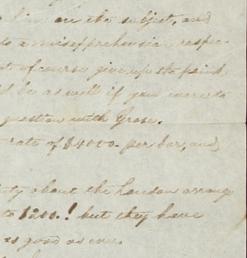 on the subject, and
to a misapprehension respec-
of course give up the point,
be as well if you were to
question with Grose.
rate of $4000. per bar, and
about the London arrang
to $200.! but they have
as good as ever.